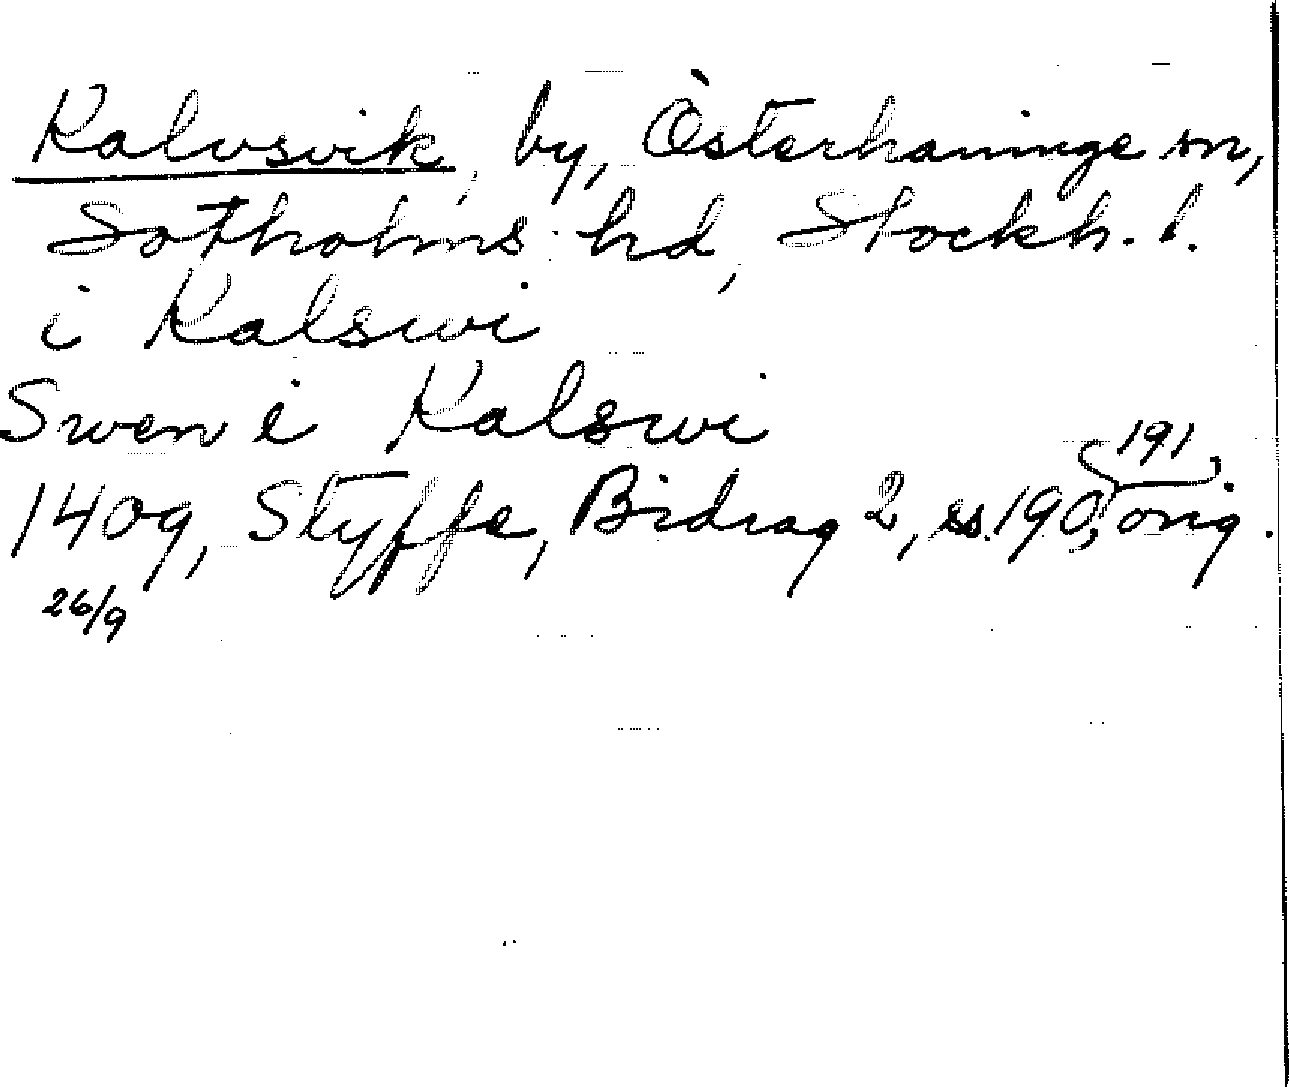 Kalvsvik, by, Österhaninge sn,
Sotholms hd, Stockh. l.
i Kalswi
Swen i Kalswi
1409, Styffe, Bidrag 2, ss. 190, 191, orig.
26/9